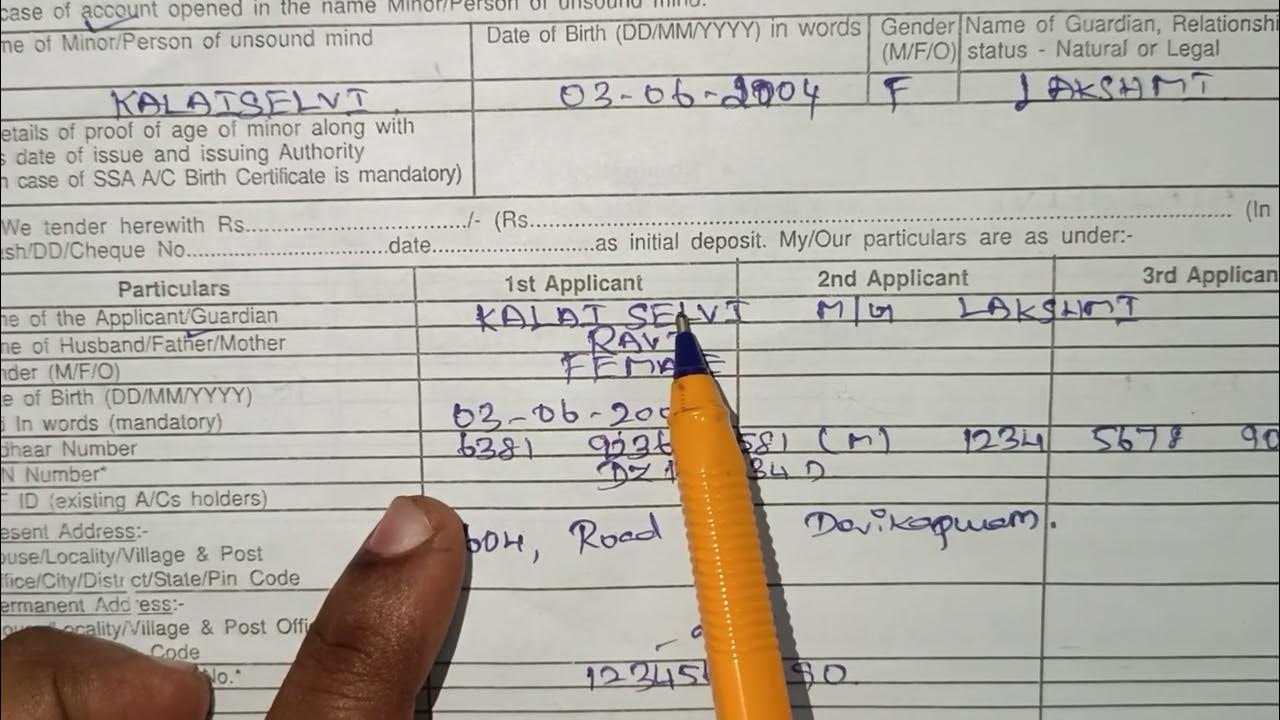 case of account opened in the name Minor/Person of unsound mind.
me of Minor/Person of unsound mind Date of Birth (DD/MM/YYYY) in words Gender (M/F/O) Name of Guardian, Relationshi status - Natural or Legal
KALAISELVI 03-06-2004 F LAKSHMI
etails of proof of age of minor along with
s date of issue and issuing Authority
n case of SSA A/C Birth Certificate is mandatory)
We tender herewith Rs............................../- (Rs.............................. (In
sh/DD/Cheque No..............................date......................as initial deposit. My/Our particulars are as under:-
Particulars 1st Applicant 2nd Applicant 3rd Applican
me of the Applicant/Guardian KALAI SELVI M/G LAKSHMI
me of Husband/Father/Mother RAVI
nder (M/F/O) FEMA E
e of Birth (DD/MM/YYYY)
In words (mandatory) 03-06-200
dhaar Number 6381 9236 581 (M) 1234 5678 90
N Number* DZ 34 D
F ID (existing A/Cs holders)
esent Address:-
ouse/Locality/Village & Post 604, Road
ffice/City/District/State/Pin Code
ermanent Address:-
ocality/Village & Post Offi
Code
No.* 12345 90